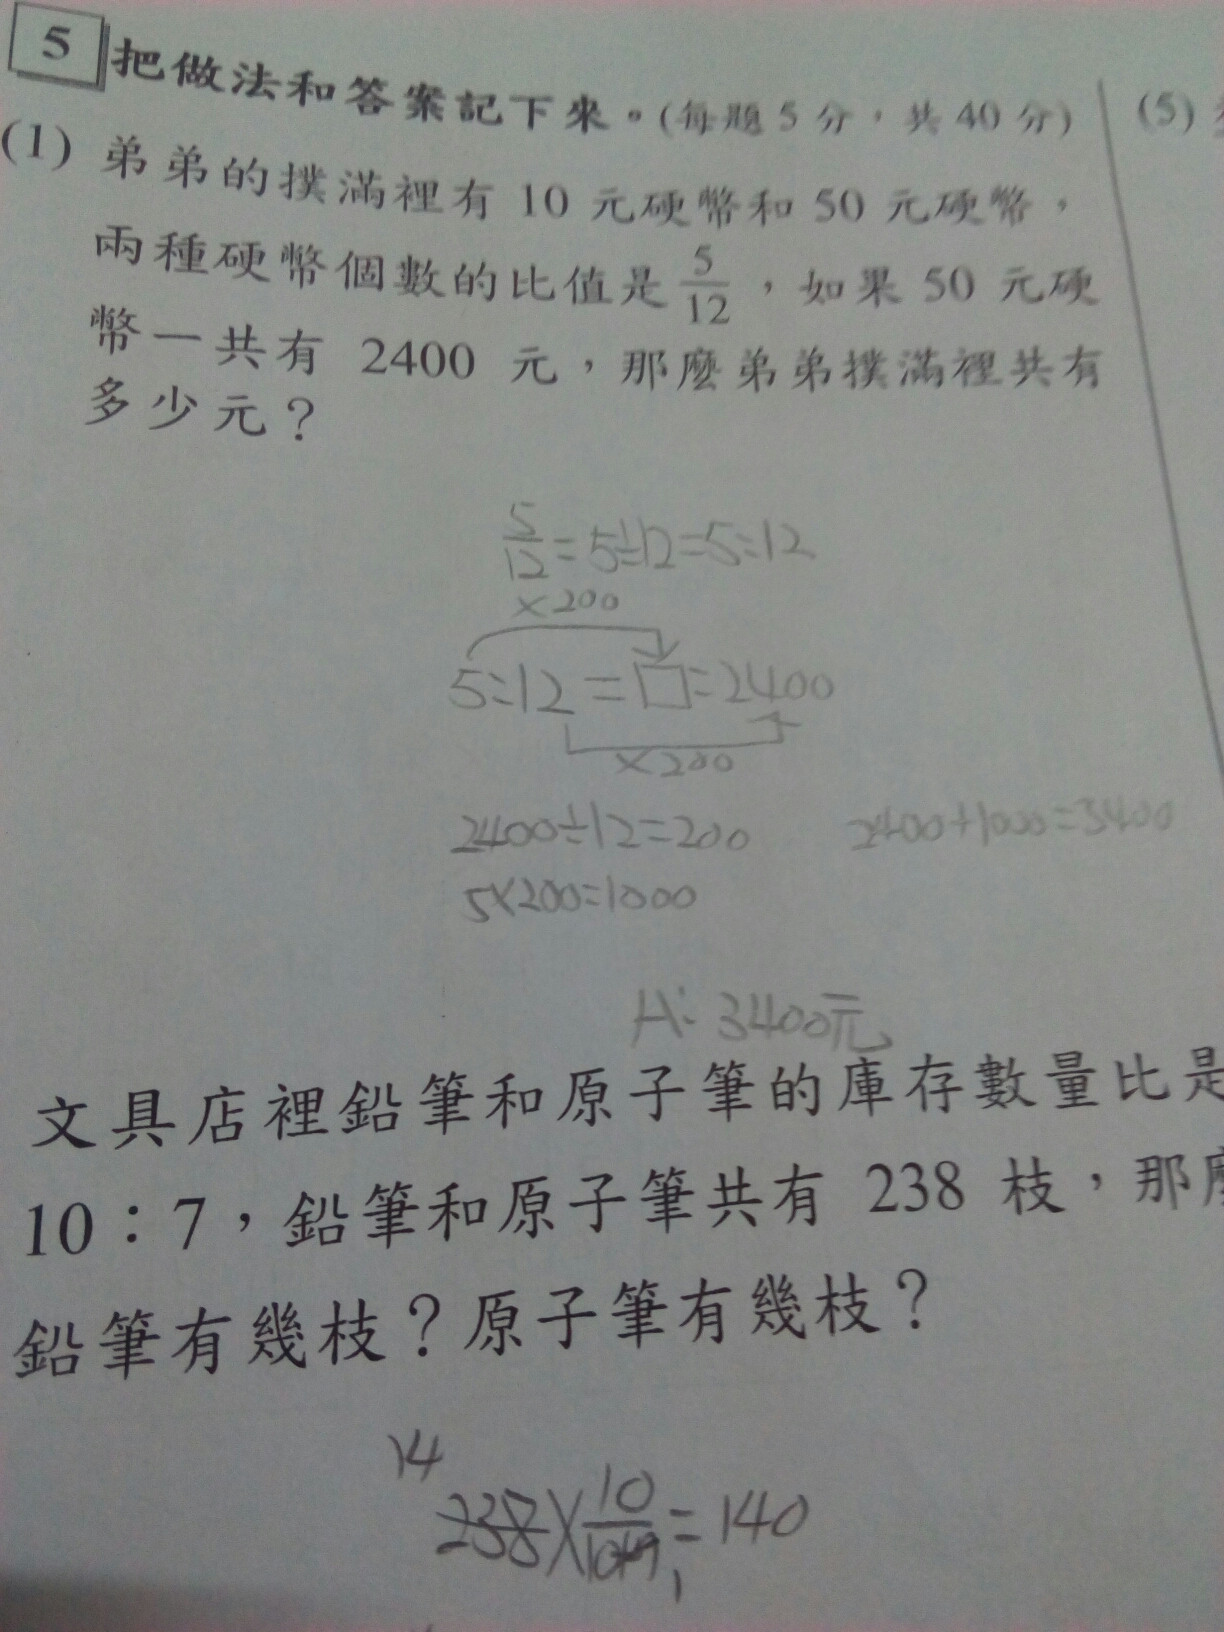 5 把做法和答案記下來。(每題5分,共40分)
(1) 弟弟的撲滿裡有10元硬幣和50元硬幣,
兩種硬幣個數的比值是5/12,如果50元硬
幣一共有 2400 元,那麼弟弟撲滿裡共有
多少元?
5/12=5÷12=5:12
×200
5:12=□:2400
×200
2400÷12=200 2400+1000=3400
5×200=1000
A: 3400元
文具店裡鉛筆和原子筆的庫存數量比是
10:7,鉛筆和原子筆共有 238 枝,那
鉛筆有幾枝?原子筆有幾枝?
14
238×10/10+7=140
1
(5)